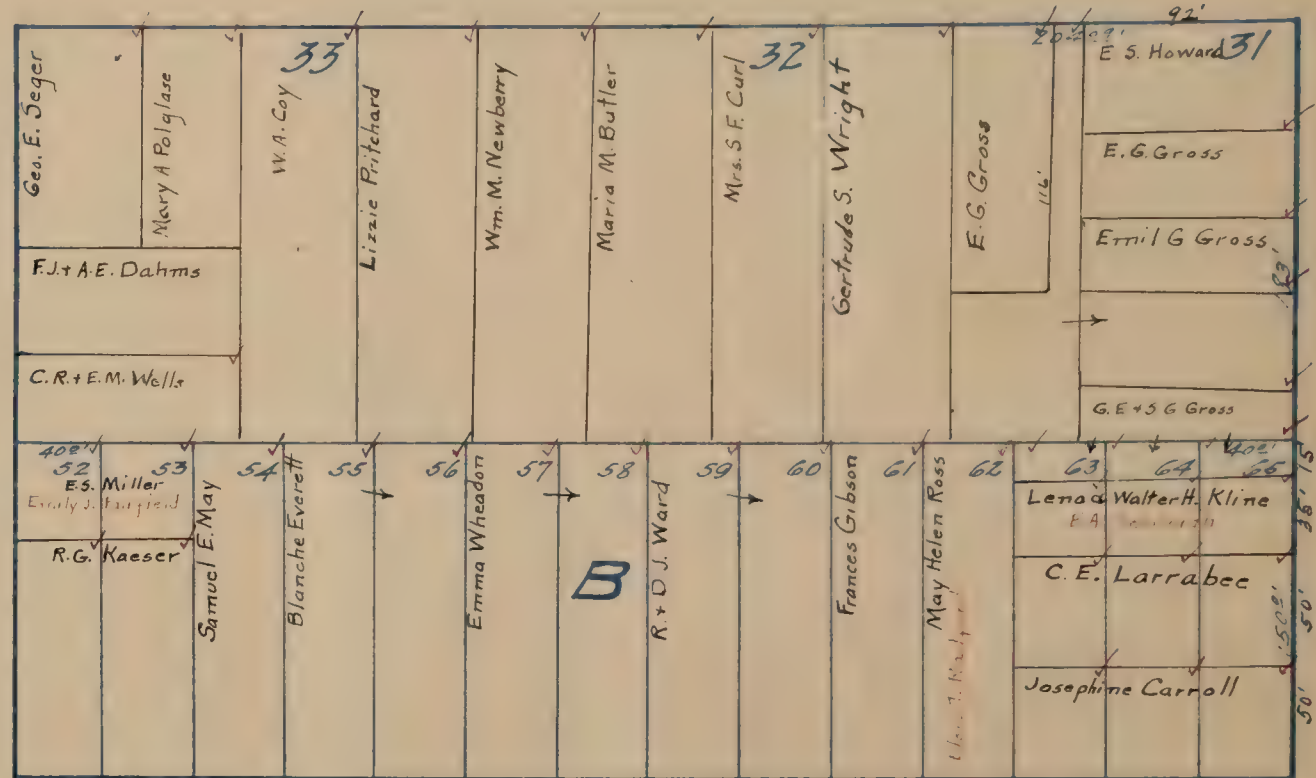 92'
Geo. E. Seger
Mary A Polglase
W. A. Coy
33
Lizzie Pritchard
Wm. M. Newberry
Maria M. Butler
Mrs. S. F. Curl
32
Gertrude S. Wright
E. G. Gross
116'
E S. Howard
31
E. G. Gross
Emil G Gross
183'
F. J. + A. E. Dahms
C. R. + E. M. Wells
G. E + S G Gross
40º'
52
53
54
55
56
57
58
59
60
61
62
63
64
40º'
65
15'
E. S. Miller
R. G. Kaeser
Samuel E. May
Blanche Everett
Emma Wheadon
B
R. + D J. Ward
Frances Gibson
May Helen Ross
Lena & Walter H. Kline
35'
C. E. Larrabee
150º'
50'
Josephine Carroll
50'